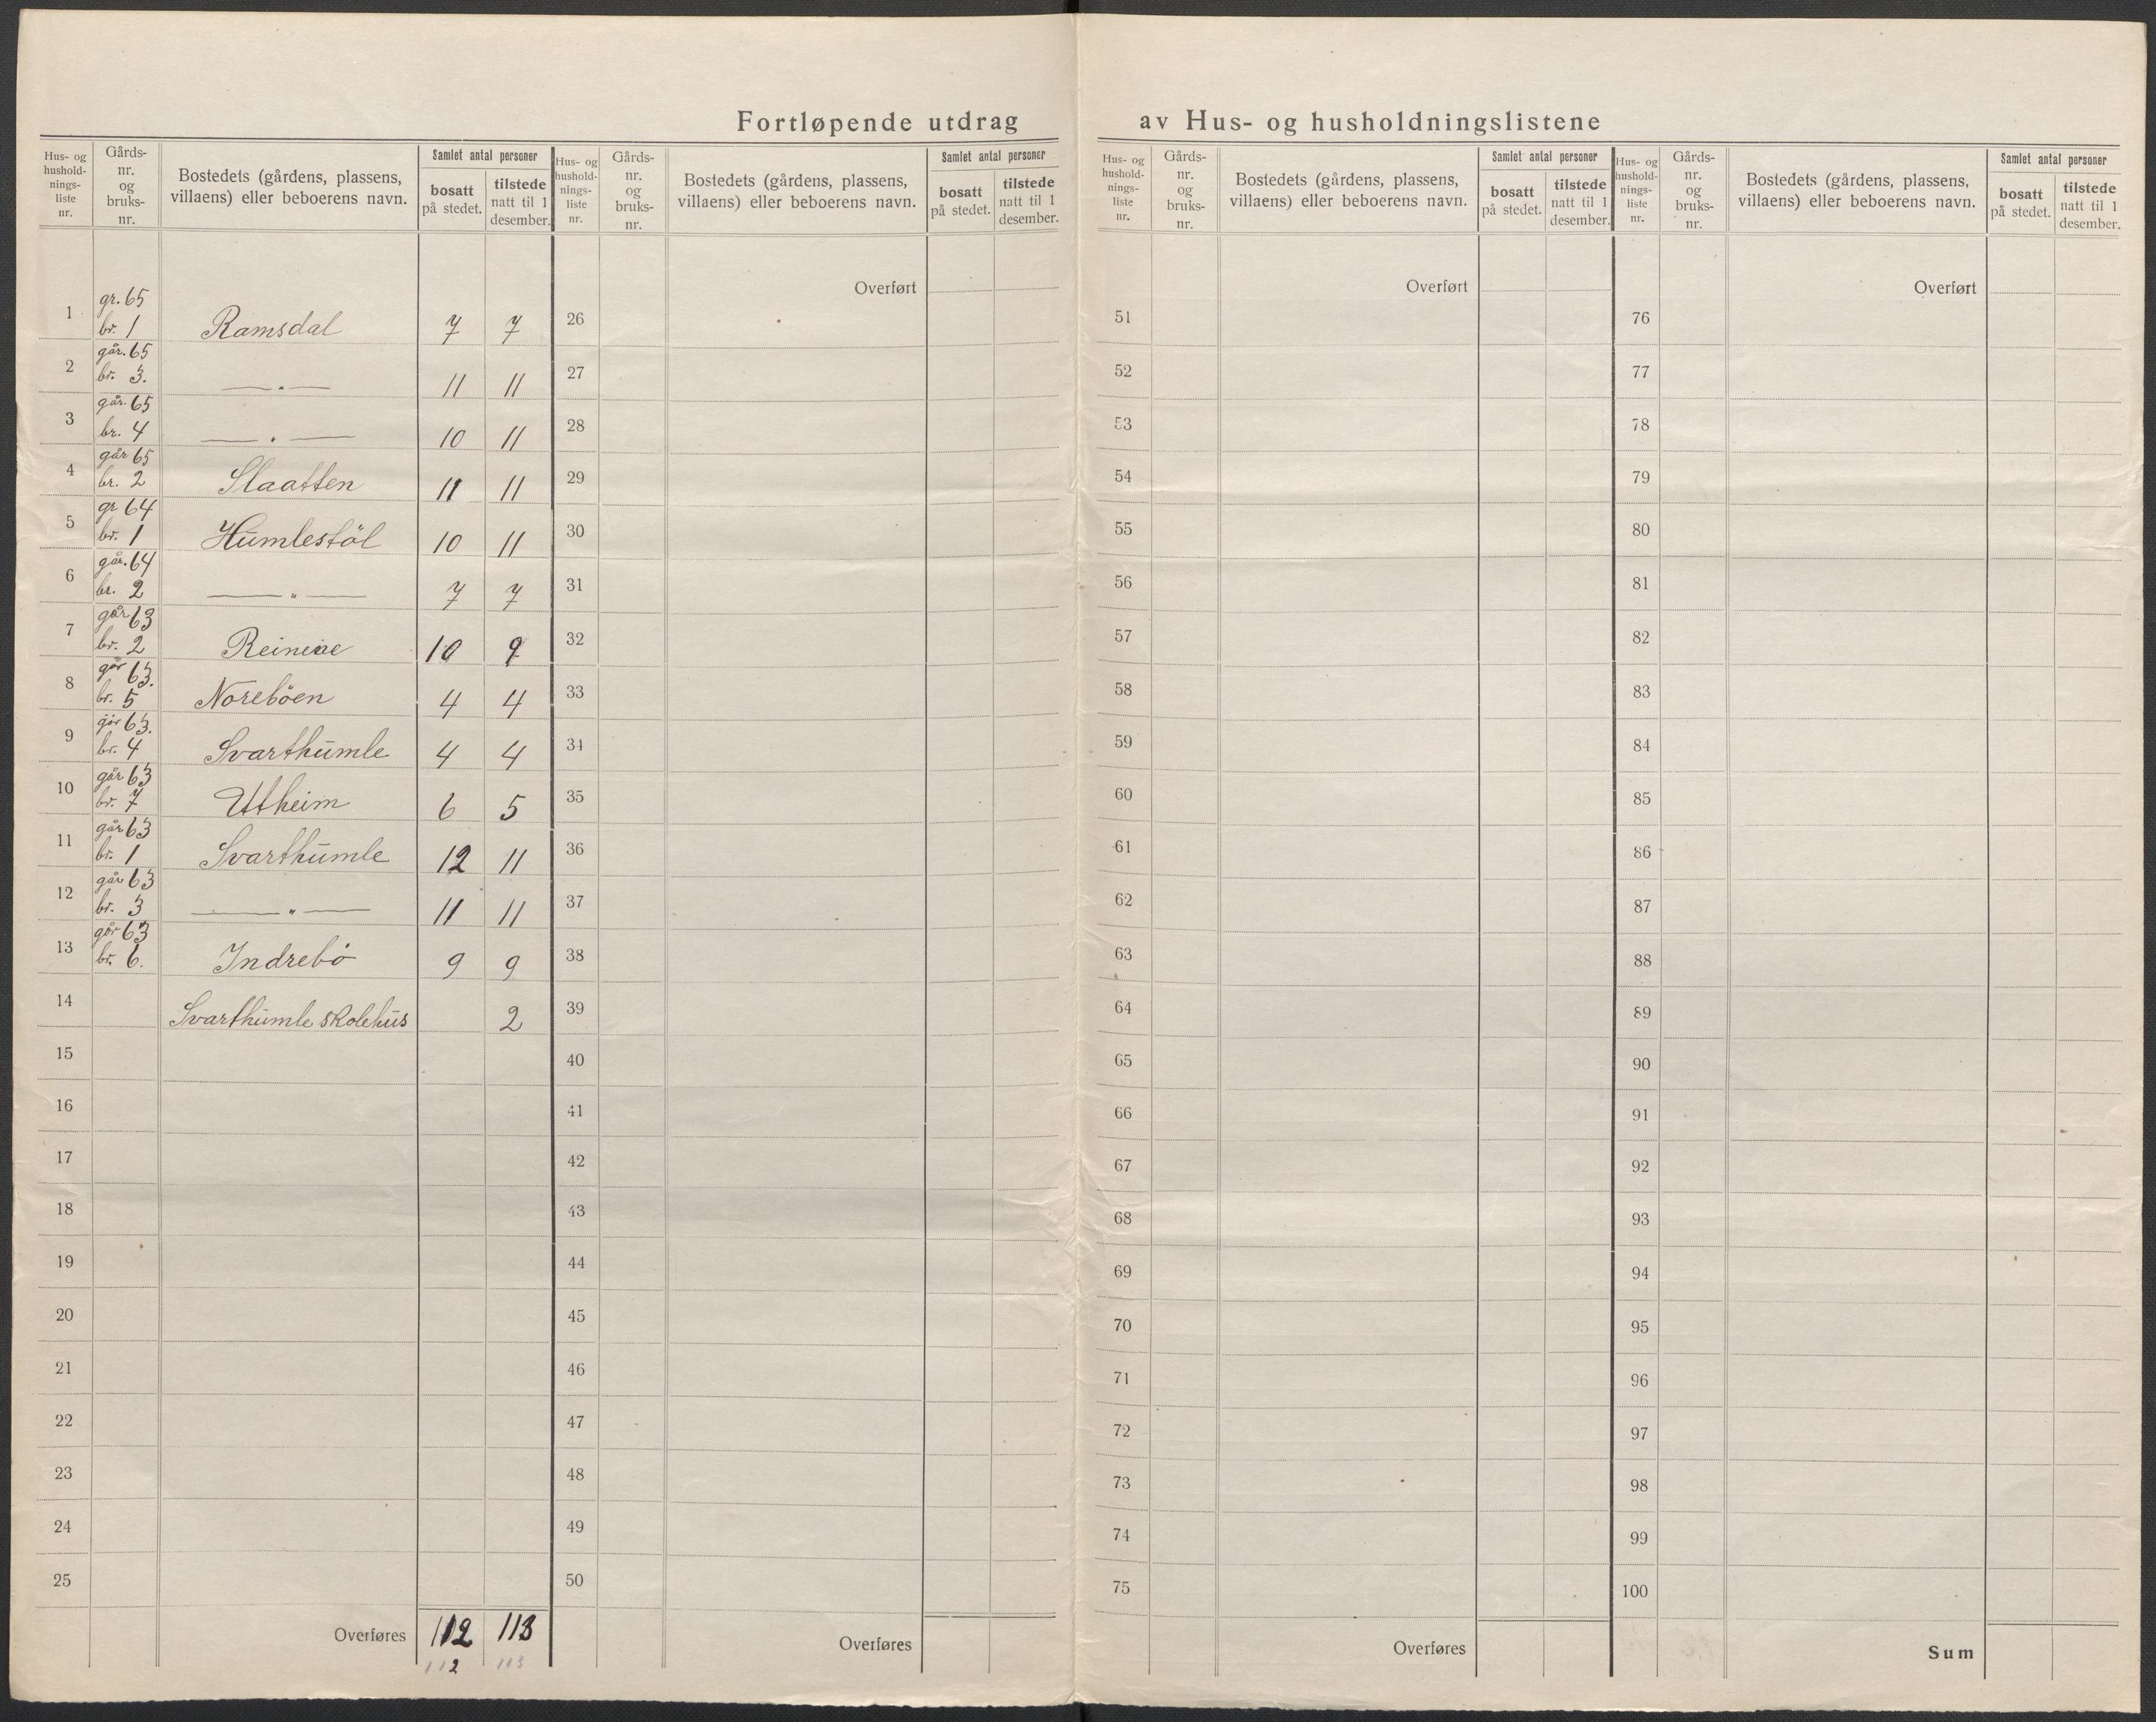 Fortløpende utdrag av Hus- og husholdningslistene
Hus- og hushold-nings-liste nr. Gårds-nr. og bruks-nr. Bostedets (gårdens, plassens, villaens) eller beboerens navn. Samlet antal personer bosatt på stedet. tilstede natt til 1 desember.
1 gr. 65 br. 1 Ramsdal 7 7
2 går. 65 br. 3. —„— 11 11
3 går. 65 br. 4 —„— 10 11
4 går 65 br. 2 Slaatten 11 11
5 gr 64 br. 1 Humlestöl 10 11
6 går. 64 br. 2 —„— 7 7
7 går 63 br. 2 10 9
8 går 63. br. 5 Noreböen 4 4
9 går 63. br. 4 Svarthumle 4 4
10 går 63 br. 7 Utheim 6 5
11 går 63 br. 1 Svarthumle 12 11
12 går 63 br. 3 —„— 11 11
13 går 63 br. 6. Indrebö 9 9
14 Svarthumle skolehus 2
15
16
17
18
19
20
21
22
23
24
25
Overføres 112 113
112 113
Hus- og hushold-nings-liste nr. Gårds-nr. og bruks-nr. Bostedets (gårdens, plassens, villaens) eller beboerens navn. Samlet antal personer bosatt på stedet. tilstede natt til 1 desember.
Overført
26
27
28
29
30
31
32
33
34
35
36
37
38
39
40
41
42
43
44
45
46
47
48
49
50
Overføres
Hus- og hushold-nings-liste nr. Gårds-nr. og bruks-nr. Bostedets (gårdens, plassens, villaens) eller beboerens navn. Samlet antal personer bosatt på stedet. tilstede natt til 1 desember.
Overført
51
52
53
54
55
56
57
58
59
60
61
62
63
64
65
66
67
68
69
70
71
72
73
74
75
Overføres
Hus- og hushold-nings-liste nr. Gårds-nr. og bruks-nr. Bostedets (gårdens, plassens, villaens) eller beboerens navn. Samlet antal personer bosatt på stedet. tilstede natt til 1 desember.
Overført
76
77
78
79
80
81
82
83
84
85
86
87
88
89
90
91
92
93
94
95
96
97
98
99
100
Sum